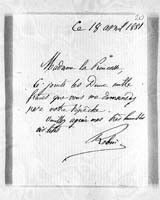 20
Ce 18 avril 1881
Madame la Princesse,
Ci joints les Deux mille
francs que vous me demandez
par votre dépêche.
Veuillez agréer mes très humbles
Robin